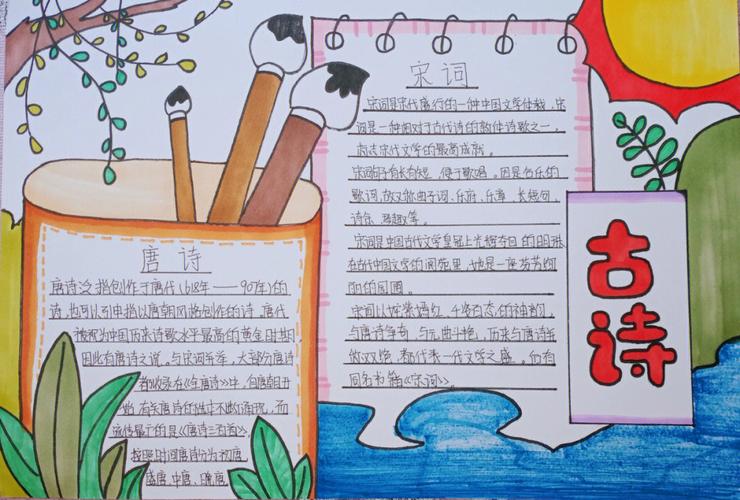 唐诗
唐诗泛指创作于唐代(618年——907年)的
诗,也可以引申指以唐朝风格创作的诗,唐代
被视为中国历来诗歌水平最高的黄金时期
因此有唐诗之说。与宋词等。大部分唐诗
都收录在《全唐诗》中,自唐朝开
始,有关唐诗的选本不断涌现,而
流传最广的是《唐诗三百首》
按照时间唐诗分为初唐
盛唐,中唐、晚唐
宋词
宋词是宋代盛行的一种中国文学体裁,宋
词是一种相对于古代诗的新体诗歌之一,
标志宋代文学的最高成就。
宋词句子有长有短,便于歌唱。因是合乐的
歌词,故又称曲子词、乐府、乐章、长短句、
诗余、琴趣等。
宋词是中国古代文学皇冠上光辉夺目的明珠
在古代中国文学的阆苑里,她是一座芬芳绚
丽的园圃。
宋词以姹紫嫣红、千姿百态的神韵,
与唐诗争奇,与元曲斗艳,历来与唐诗并
称双绝,都代表一代文学之盛。 有
同名书籍《宋词》。
古诗